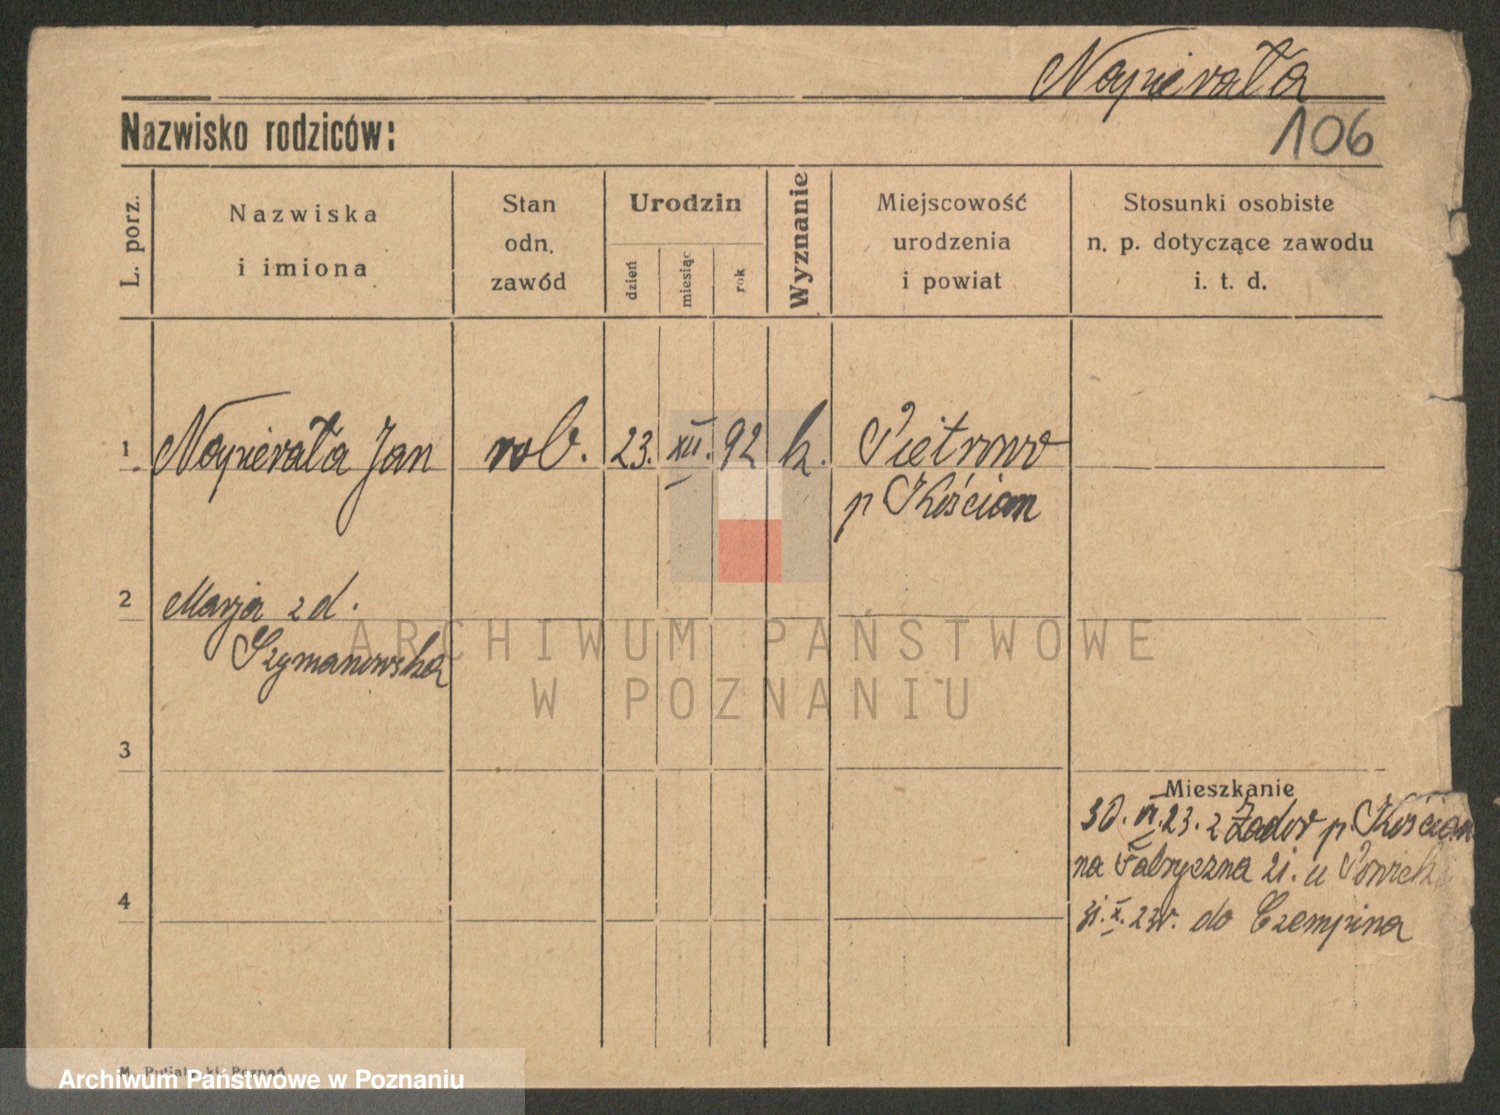 Napierała
Nazwisko rodziców:
106
L. porz.
Nazwiska
i imiona
Stan
odn.
zawód
Urodzin
dzień
miesiąc
rok
Wyznanie
Miejscowość
urodzenia
i powiat
Stosunki osobiste
n. p. dotyczące zawodu
i. t. d.
1 Napierała Jan rob. 23. XII. 92 k. Pietrowo
p Kościan
2 Marja z d.
Szymanowska
3
4
Mieszkanie
30. VI. 23. z p. Kościan
na Fabryczna 21. u
31. X. 23r. do Czempina
ARCHIWUM PAŃSTWOWE
W POZNANIU
M. Poznań
Archiwum Państwowe w Poznaniu